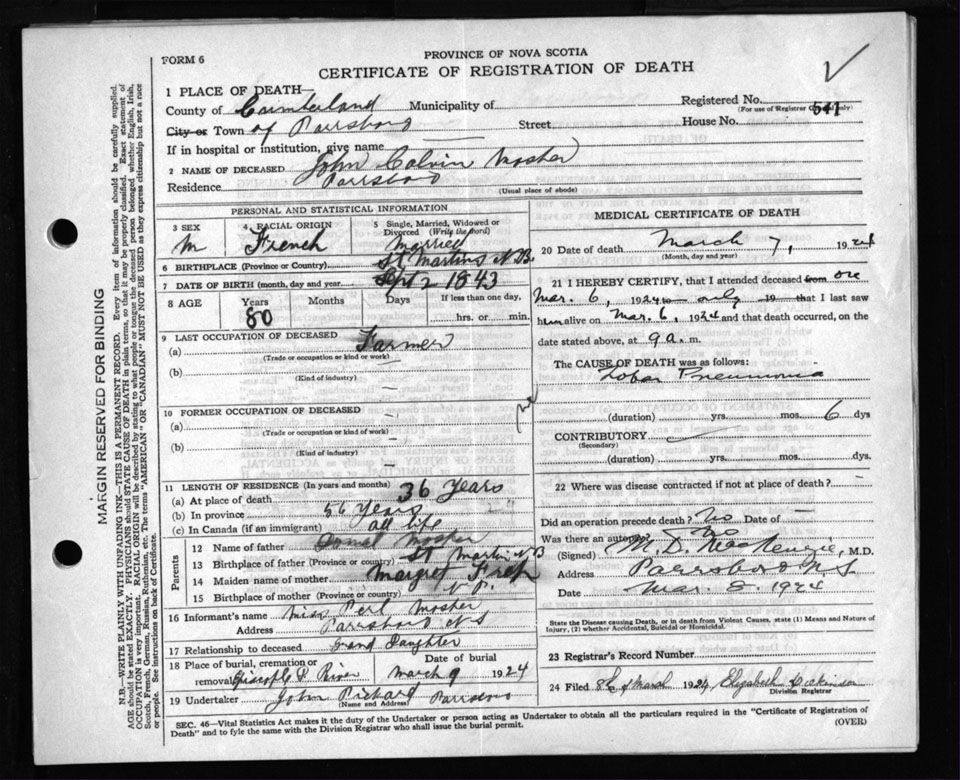 FORM 6
PROVINCE OF NOVA SCOTIA
CERTIFICATE OF REGISTRATION OF DEATH
1 PLACE OF DEATH—
County of Cumberland Municipality of
Registered No. 541
(For use of Registrar General only)
City or Town of Parrsboro Street House No.
If in hospital or institution, give name
2 NAME OF DECEASED John Calvin Mosher
Residence Parrsboro
(Usual place of abode)
PERSONAL AND STATISTICAL INFORMATION
3 SEX M
4 RACIAL ORIGIN French
5 Single, Married, Widowed or Divorced (Write the word) Married
6 BIRTHPLACE (Province or Country) St Martins N.B.
7 DATE OF BIRTH (month, day and year) Sept 2 1843
8 AGE Years Months Days If less than one day,
80 hrs. or min.
9 LAST OCCUPATION OF DECEASED
(a) Farmer
(Trade or occupation or kind or work)
(b) —
(Kind of industry)
10 FORMER OCCUPATION OF DECEASED
(a) —
(Trade or occupation or kind of work)
(b) —
(Kind of industry)
11 LENGTH OF RESIDENCE (In years and months)
(a) At place of death 36 Years
(b) In province 56 Years
(c) In Canada (if an immigrant) all life
Parents
12 Name of father Mosher
13 Birthplace of father (Province or country) St Martin N B
14 Maiden name of mother Margret
15 Birthplace of mother (Province or country)
16 Informant's name Miss Perl Mosher
Address Parrsboro N S
17 Relationship to deceased Grand Daughter
18 Place of burial, cremation or removal River
Date of burial March 9 1924
19 Undertaker John Richard Parrsboro
(Name and Address)
MEDICAL CERTIFICATE OF DEATH
20 Date of death March 7, 1924
(Month, day and year)
21 I HEREBY CERTIFY, that I attended deceased from on
Mar. 6, 1924 to only 19 that I last saw
him alive on Mar. 6, 1924 and that death occurred, on the
date stated above, at 9 a. m.
The CAUSE OF DEATH was as follows:
Lobar Pneumonia
(duration) yrs. mos. 6 dys
CONTRIBUTORY
(Secondary)
(duration) yrs. mos. dys.
22 Where was disease contracted if not at place of death? —
Did an operation precede death? No Date of —
Was there an autopsy? No
(Signed) M. D. MacKenzie, M.D.
Address Parrsboro N S
Date Mar. 8. 1924
State the Disease causing Death, or in death from Violent Causes, state (1) Means and Nature of Injury, (2) whether Accidental, Suicidal or Homicidal.
23 Registrar's Record Number
24 Filed 8th of March 1924, Elizabeth Dickinson
Division Registrar
SEC. 46—Vital Statistics Act makes it the duty of the Undertaker or person acting as Undertaker to obtain all the particulars required in the "Certificate of Registration of
Death" and to fyle the same with the Division Registrar who shall issue the burial permit.
(OVER)
MARGIN RESERVED FOR BINDING
N.B.—WRITE PLAINLY WITH UNFADING INK—THIS IS A PERMANENT RECORD. Every item of information should be carefully supplied.
AGE should be stated EXACTLY. PHYSICIANS should STATE CAUSE OF DEATH in plain terms, so that it may be properly classified. Exact statement of
OCCUPATION is very important. RACIAL ORIGIN will be described by stating to what people or tongue the deceased person belonged whether English, Irish,
Scotch, French, German, Russian, Ruthenian, etc. The terms "AMERICAN" OR "CANADIAN" MUST NOT BE USED as they express citizenship but not a race
or people. See instructions on back of Certificate.